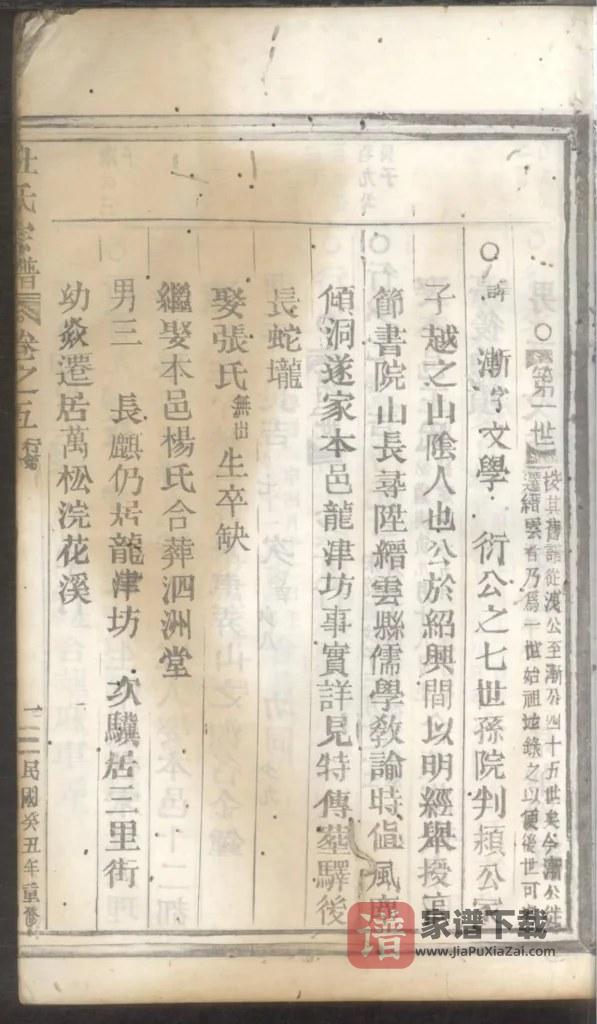 ○第一世
按其舊譜從洩公至漸公四十五世矣今漸公徙
遷縉雲者乃為一世始祖逓錄之以便後世可
○ 漸字文學 衍公之七世孫院判頴公
子越之山陰人也公於紹興間以明經舉授
節書院山長尋陞縉雲縣儒學敎諭時值風塵
傾洞遂家本邑龍津坊事實詳見特傳塟驛後
長蛇壠
娶張氏無出生卒缺
繼娶本邑楊氏合葬泗洲堂
男三 長麒仍居龍津坊 次驥居三里街
幼焱遷居萬松浣花溪
杜氏宗譜 卷之五 行
民國癸丑年重脩
譜 家谱下载
www.JiaPuXiaZai.com